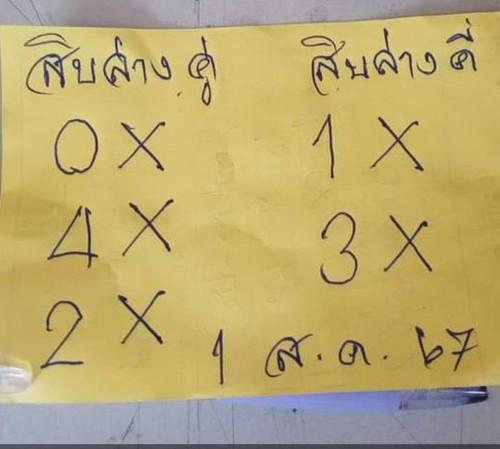 สิบล่าง คู่ สิบล่าง คี่
0 X 1 X
4 X 3 X
2 X
1 ส.ค. 67